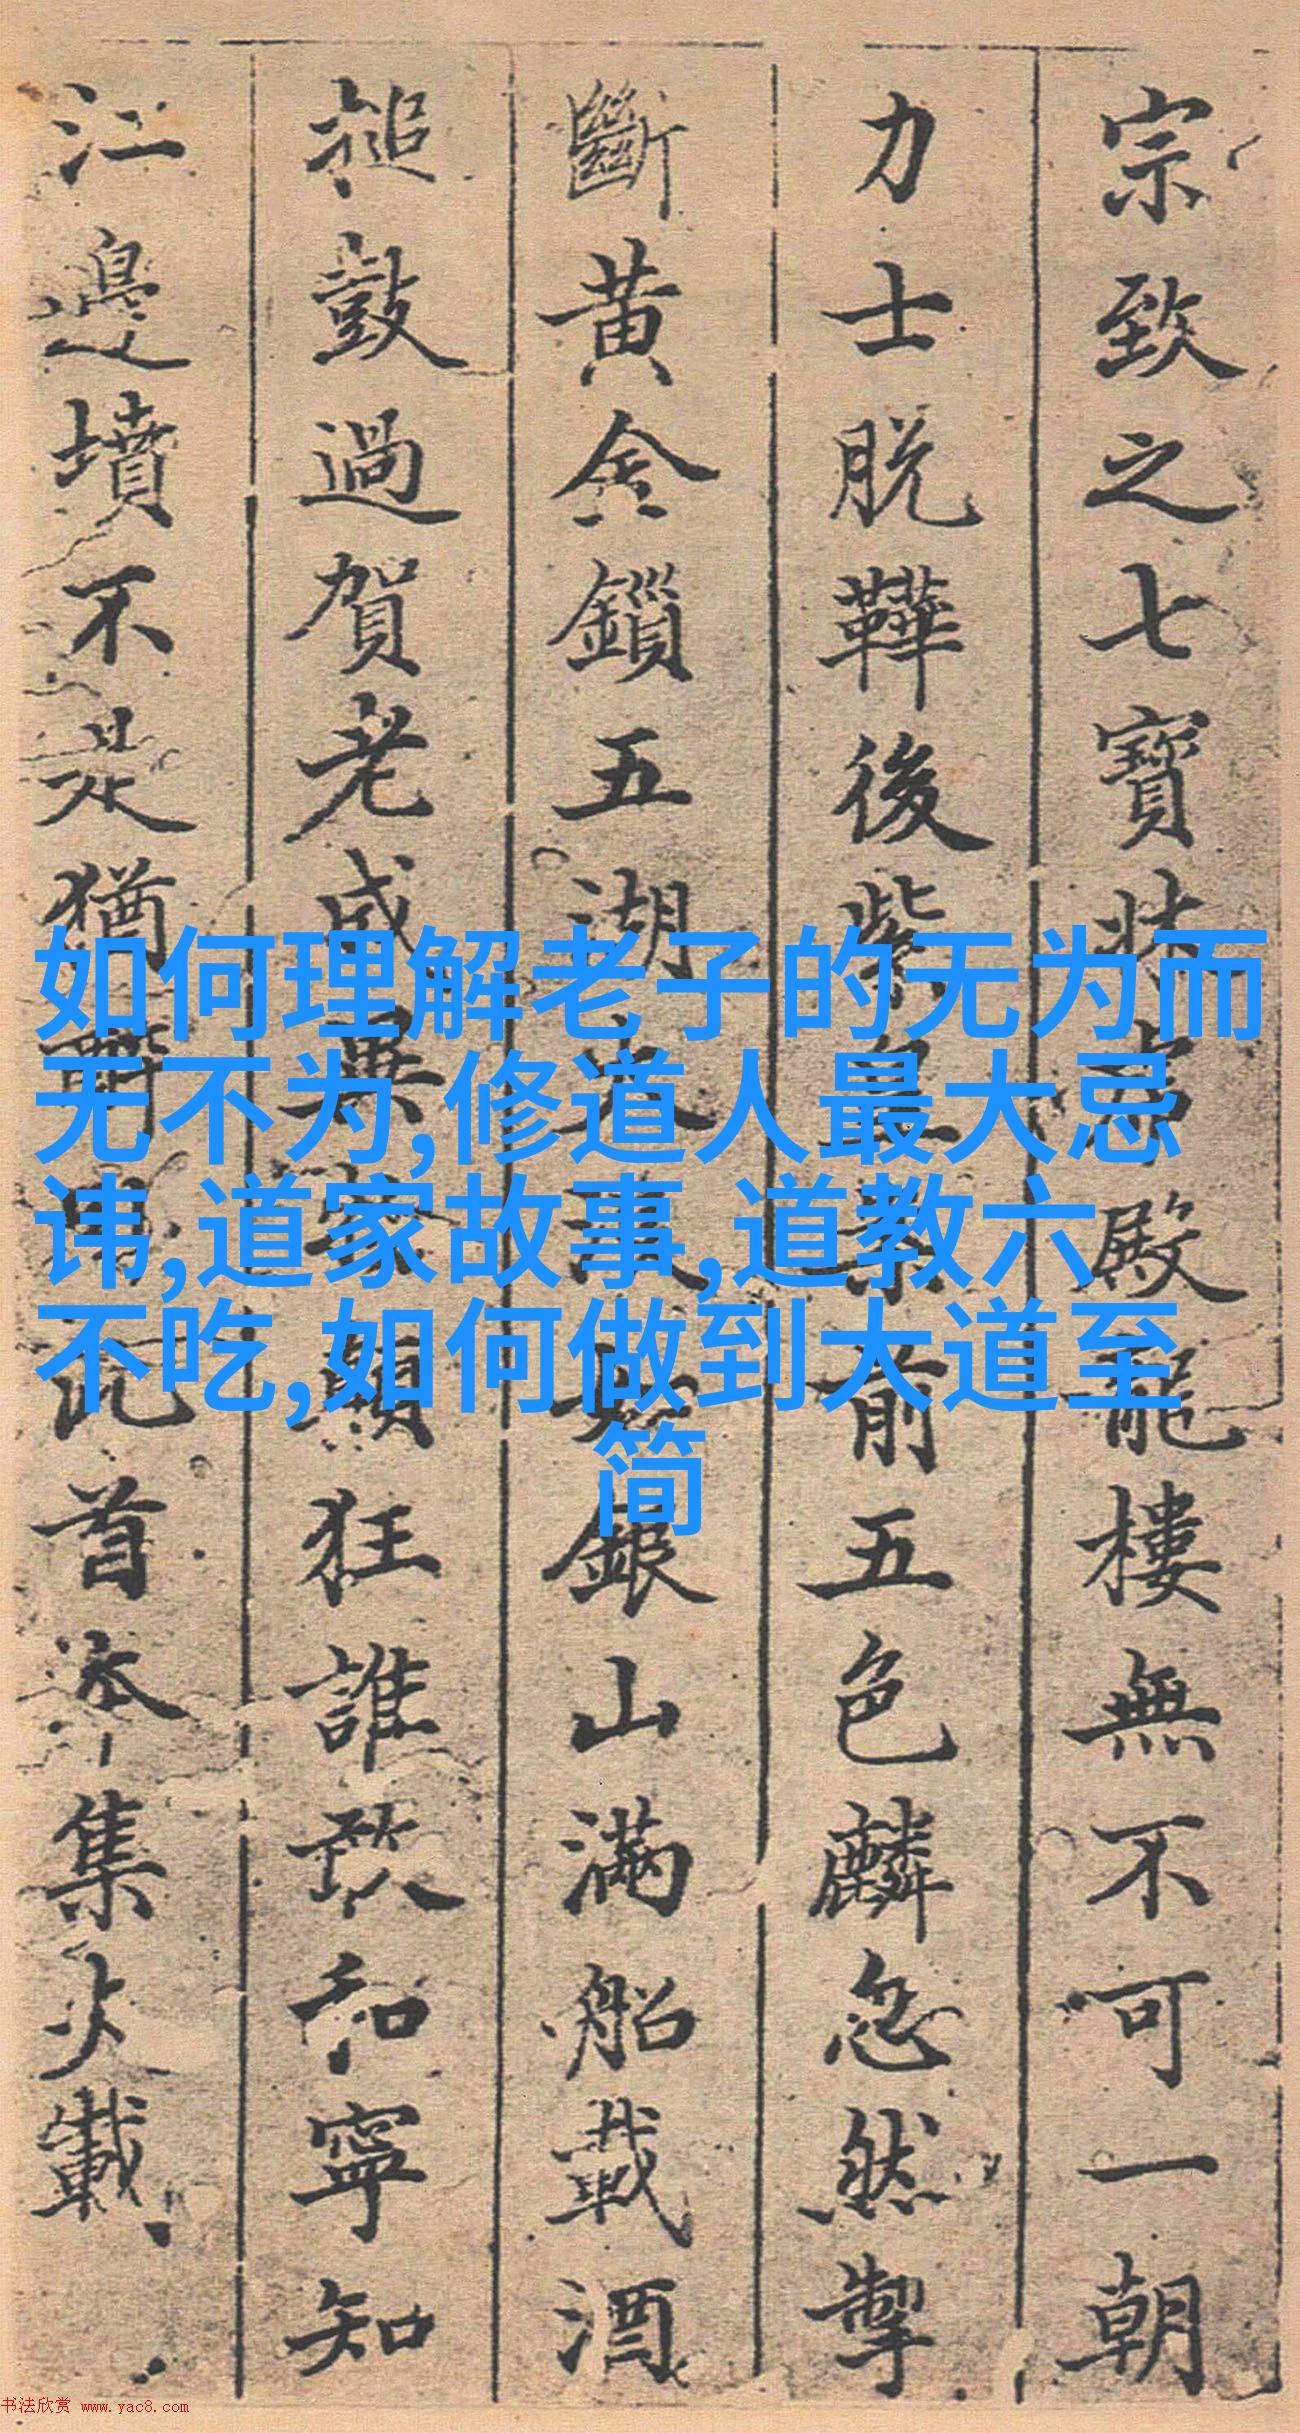 宗致之七寶牀殿龍樓無不可一朝
力士脫鞾後紫皇案前五色麟忽然掣
斷黃金鎖五湖大浪如銀山滿船載酒
搥鼓過賀老成異物顛狂誰敢和寧知
江邊墳不是猶醉此首本集載
如何理解老子的无为而
无不为,修道人最大忌
讳,道家故事,道教六
不吃,如何做到大道至
简
书法欣赏 www.yac8.com